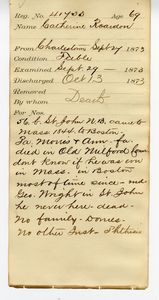 Reg. No. 41732 Age 69
Name Catherine Reardon
From Charlestown Sept 27, 1873
Condition Feeble
Examined Sept 29 1873
Discharged Oct 13 1873
Removed
By whom Death
For Nos.
St. John N.B. came to
Mass 1844 to Boston.
Fa. Morris & Ann - fa.
died in Old Milford from
dont know if he was ever
in Mass. in Boston
most of time since - md
Geo. Wright in St. John
he never here - dead -
No family - Domes.
No other Inst - Phthisis